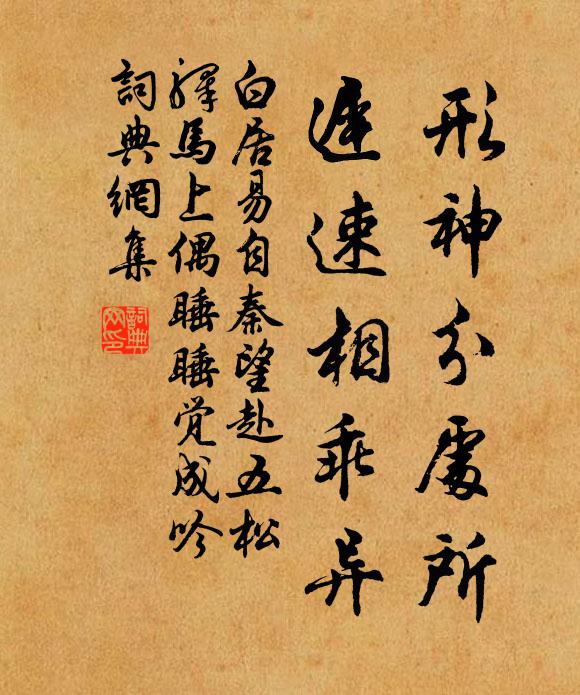 形神分處所
遲速相乖异
白居易自秦望赴五松
驛馬上偶睡睡覚成吟
詞典網集
詞典网印